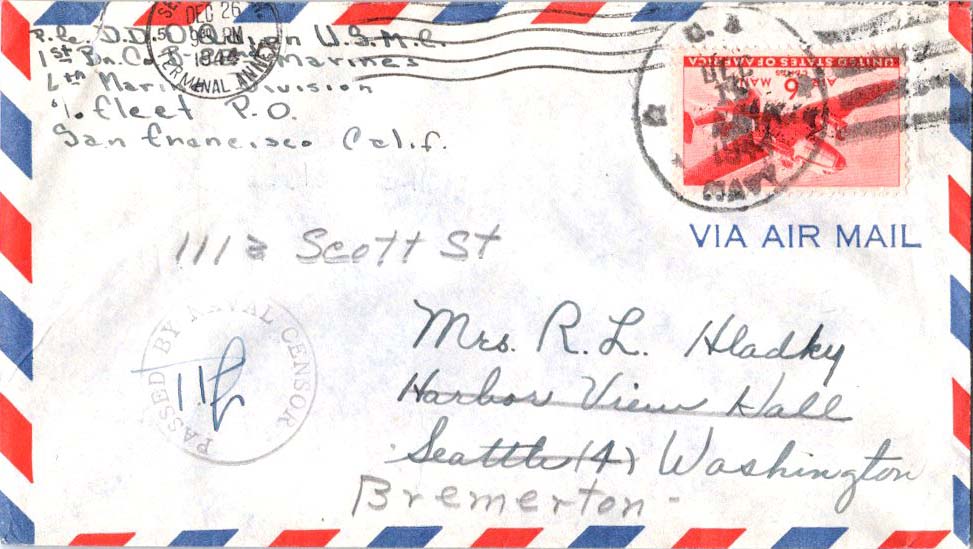 DEC 26
9 PM
1944
TERMINAL ANNEX
U.S.M.C.
1st Bn. Co. B Marines
Marine Division
% Fleet P.O.
San Francisco Calif.
UNITED STATES OF AMERICA
6 CENTS AIR MAIL
U.S.
NAVY
DEC
VIA AIR MAIL
1112 Scott St
PASSED BY NAVAL CENSOR
Mrs. R. L. Hladky
Harbor View Hall
Seattle (4) Washington
Bremerton -